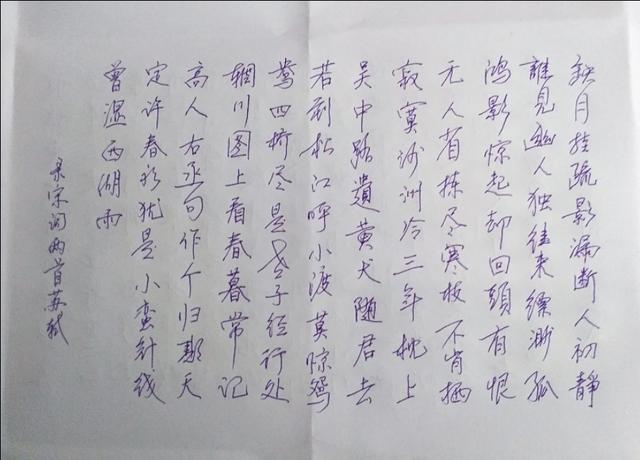 缺月挂疏影漏断人初靜
誰見幽人独往来缥渺孤
鸿影惊起却回頭有恨
无人省拣尽寒枝不肯栖
寂寞沙洲冷三年枕上
吴中路遺黄犬随君去
若到松江呼小渡莫惊鸳
鹭四桥尽是老子经行处
辋川图上看春暮常记
高人右丞句作个归期天
定许春衫犹是小蛮针线
曾湿西湖雨
录宋词两首苏轼